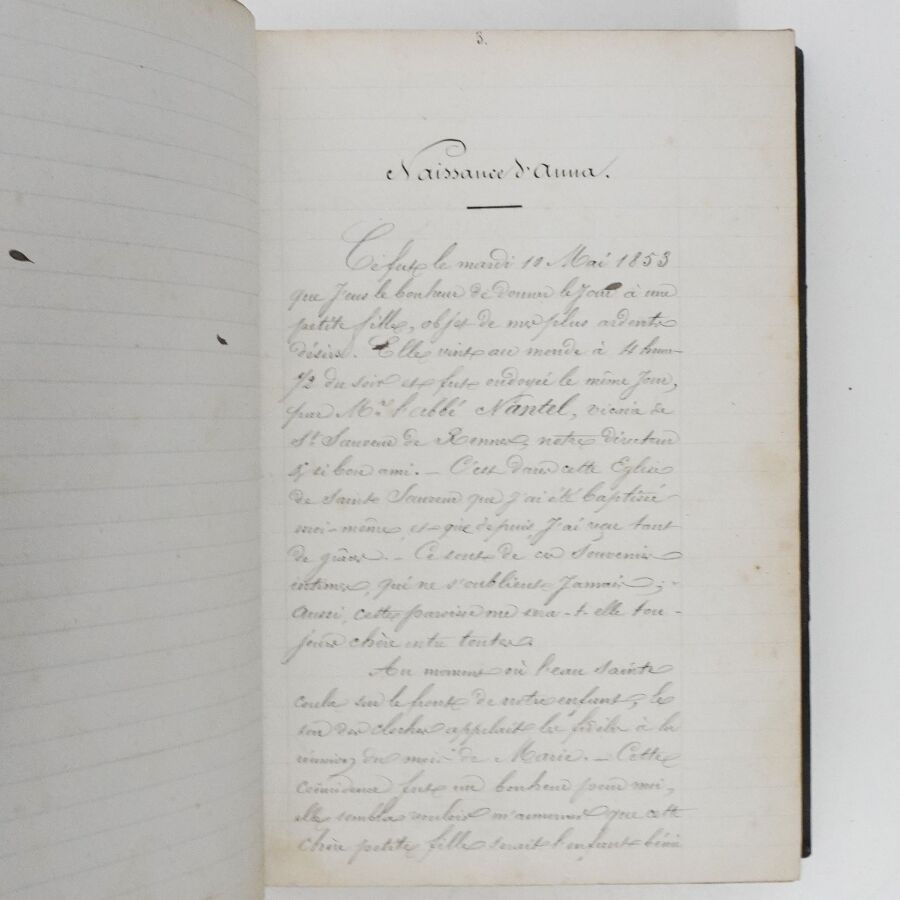 3.
Naissance d'Anna.
Ce fut le mardi 10 Mai 1853
que J'eus le bonheur de donner le Jour à une
petite fille, objet de mes plus ardents
désirs. Elle vint au monde à 4 heures
1/2 du soir et fut ondoyée le même Jour,
par Mr l'abbé Nantel, vicaire de
St Sauveur de Rennes, notre directeur
si bon ami. — C'est dans cette Eglise
de Saint Sauveur que J'ai été baptisée
moi-même, et que depuis, J'ai reçu tant
de grâces. — Ce sont de ces Souvenirs
intimes, qui ne s'oublient Jamais ;
Aussi, cette paroisse me sera-t-elle tou-
jours chère entre toutes.
Au moment où l'eau sainte
coula sur le front de notre enfant, le
son des cloches appelait les fidèles à la
réunion du mois de Marie. — Cette
coïncidence fut un bonheur pour moi,
elle sembla vouloir m'annoncer que cette
chère petite fille serait l'enfant béni